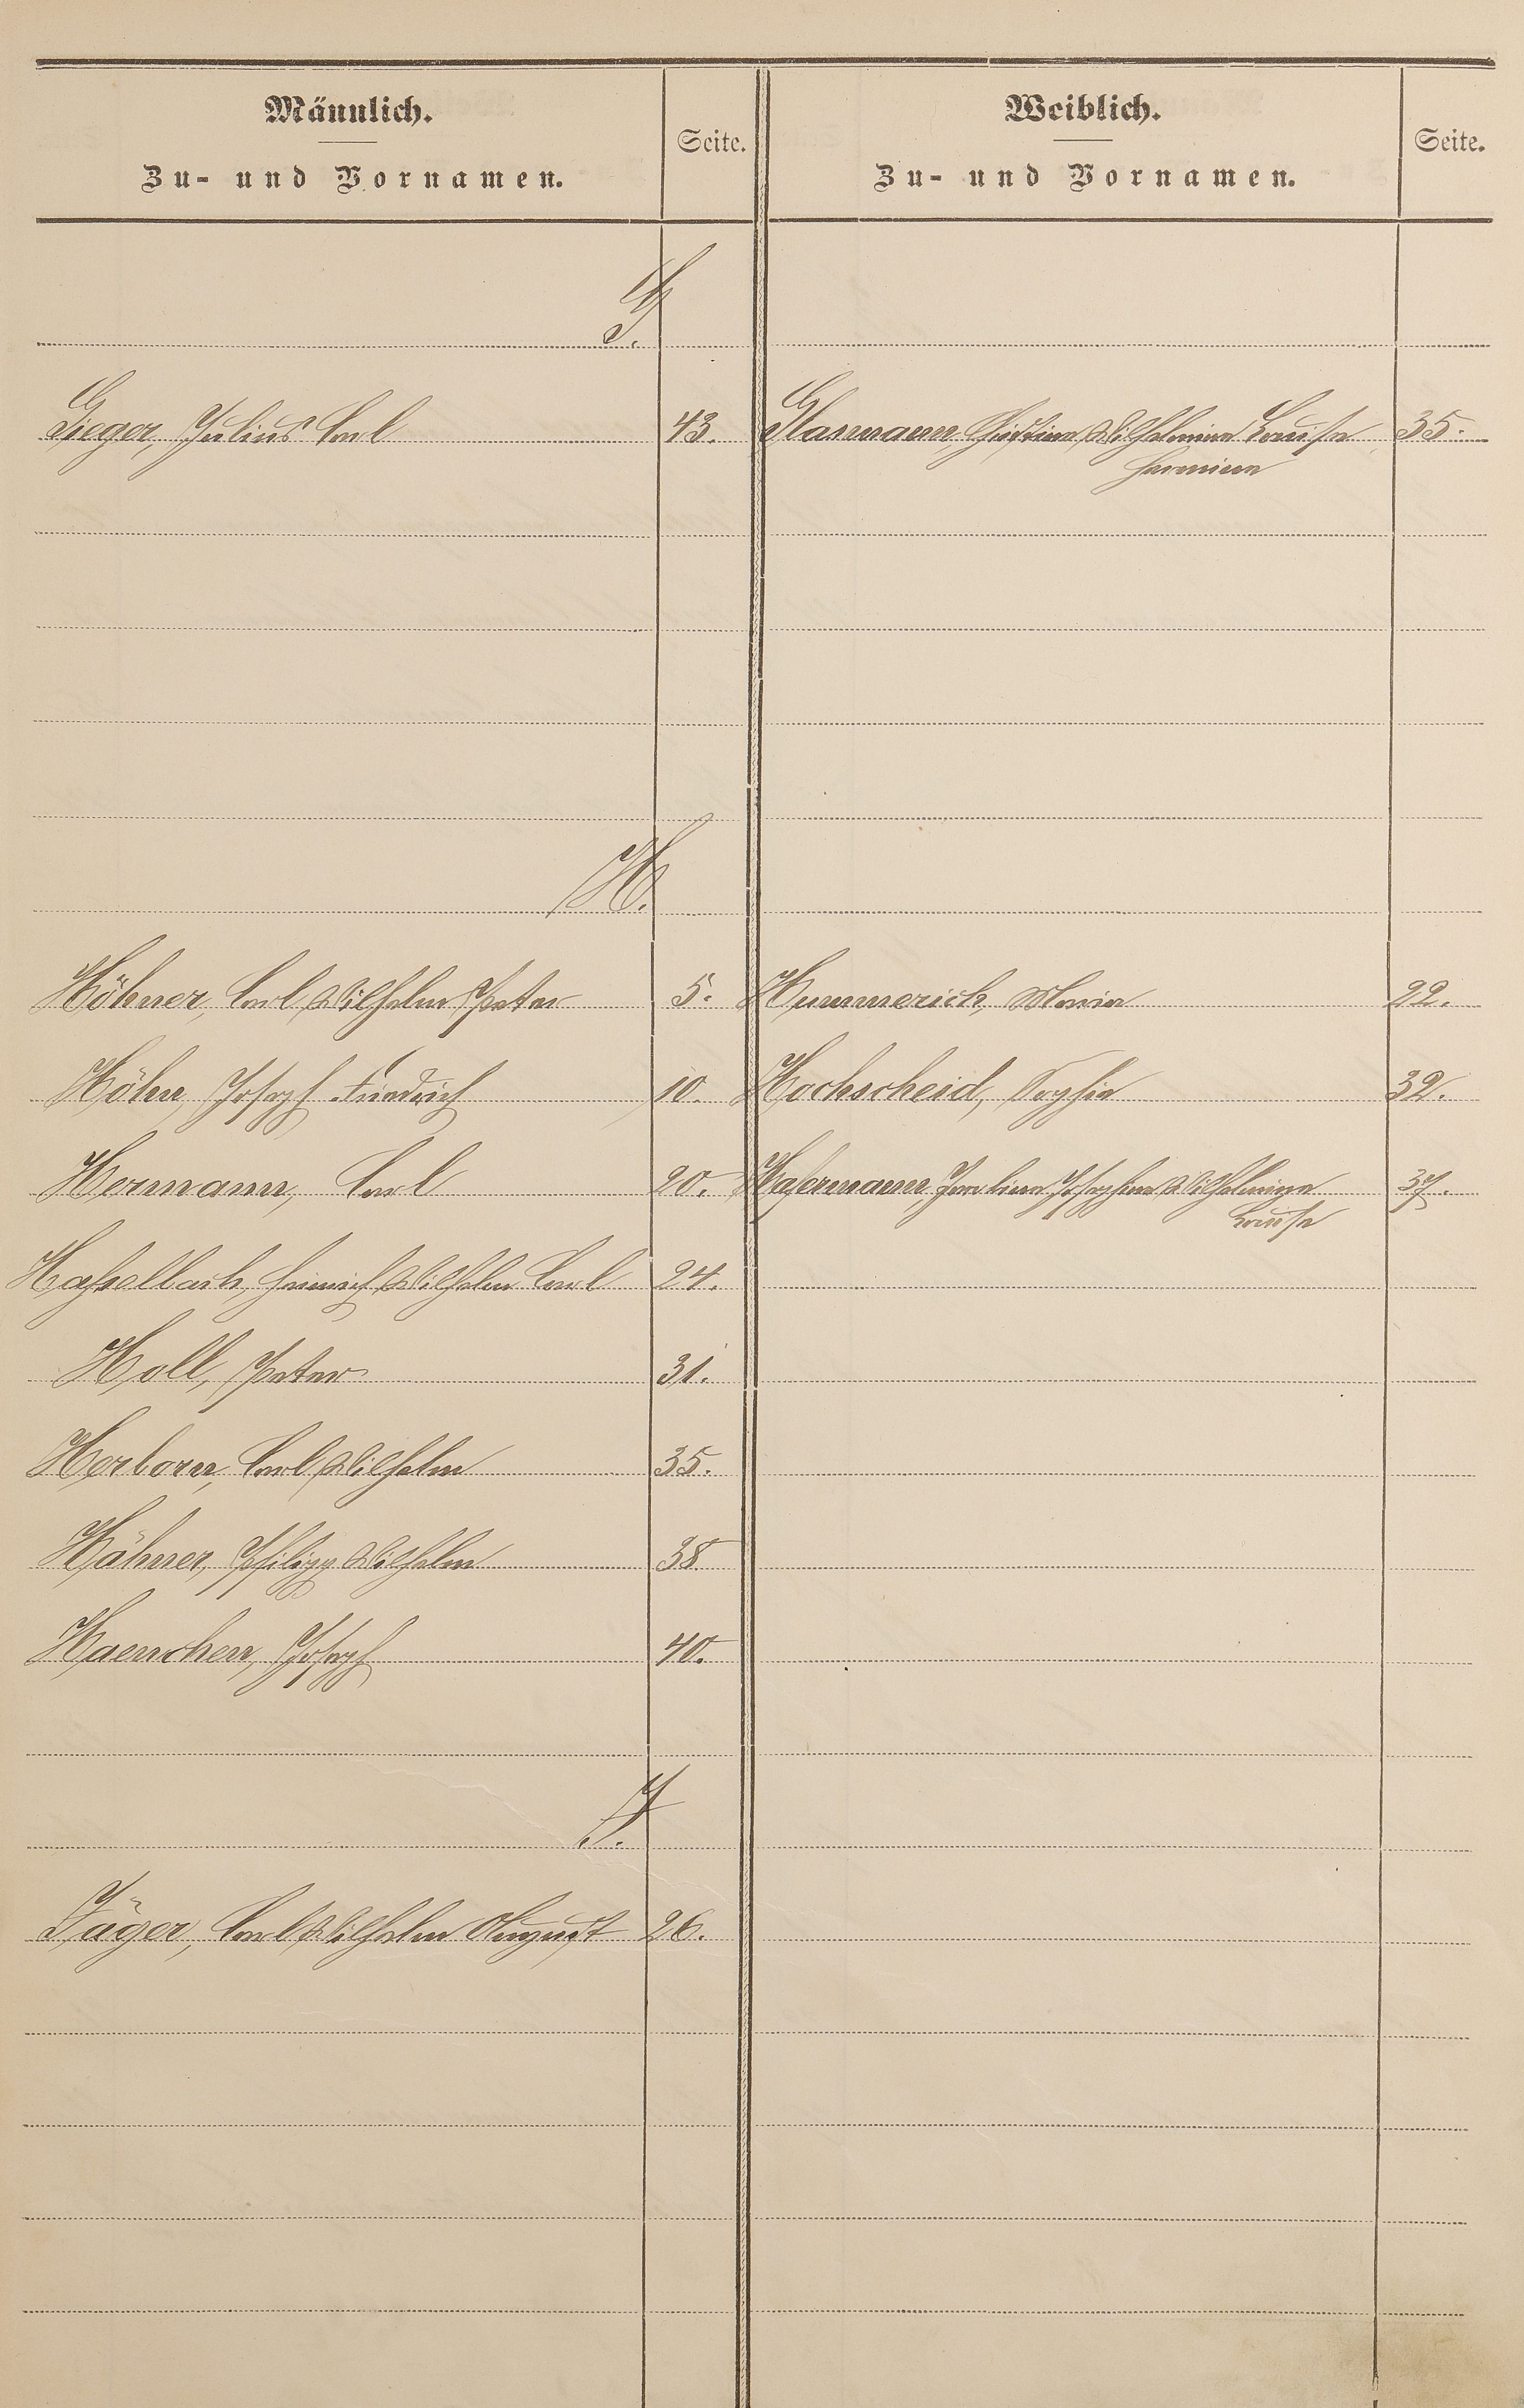 Männlich.
Zu- und Vornamen.
Seite.
Weiblich.
Zu- und Vornamen.
Seite.
G.
Gieger, Julius Carl 43.
Glasmann, Christine Wilhelmine Louise 35.
Hermine
H.
Höhner, Carl Wilhelm Peter 5. Hummerich, Maria 22.
Höhn, Joseph Friedrich 10. Hochscheid, Sophie 32.
Hermann, Carl 20. Hasermann, Josephine Wilhelmine 37.
Louise
Haßelbach, Heinrich Wilhelm Carl 24.
Holl, Peter 31.
Herborn, Carl Wilhelm 35.
Hähner, Philipp Wilhelm 38
Haenchen, Joseph 40.
J.
Jäger, Carl Wilhelm August 26.